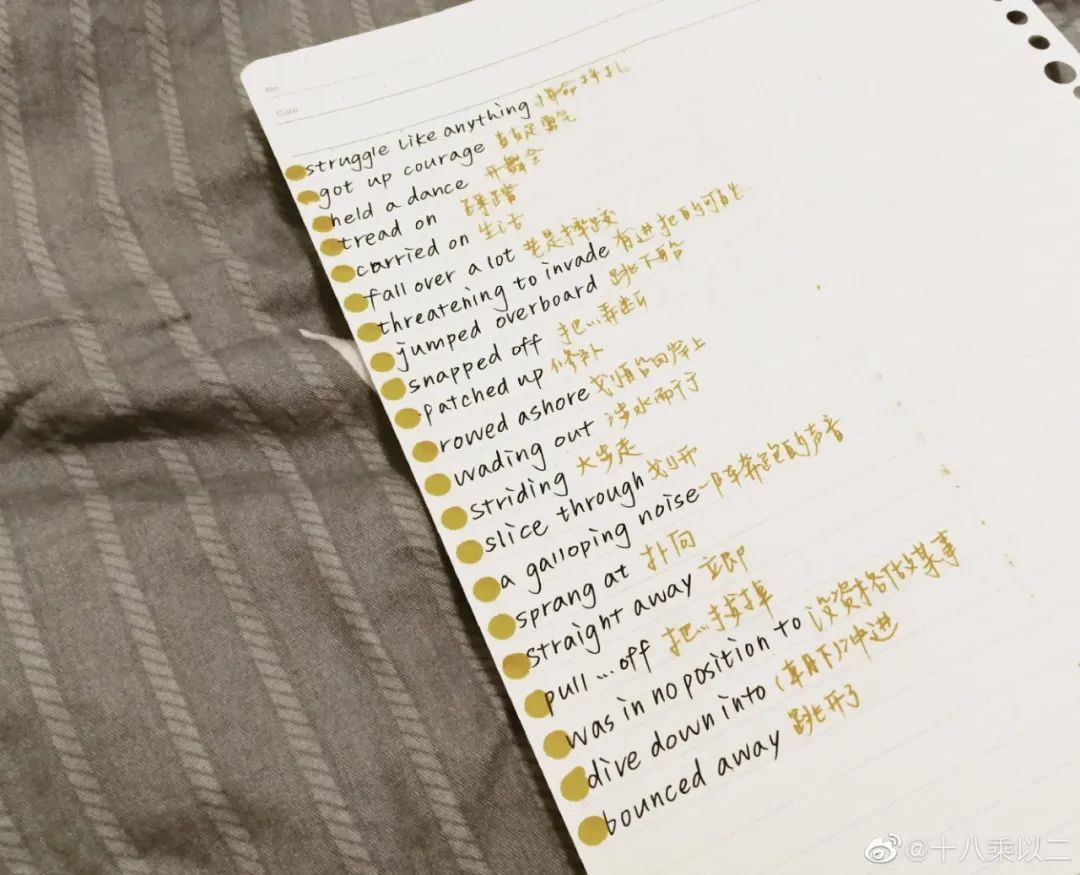 No
Date
struggle like anything 拼命挣扎
got up courage 鼓足勇气
held a dance 开舞会
tread on 踩踏
carried on 生活
fall over a lot 老是摔跤
threatening to invade 有进犯的可能
jumped overboard 跳下船
snapped off 把…弄断
patched up 修补
rowed ashore 划船回岸上
wading out 涉水而行
striding 大步走
slice through 划开
a galloping noise 一阵奔跑的声音
sprang at 扑向
straight away 立即
pull ... off 把…拔掉
was in no position to 没资格做某事
dive down into (朝下)冲进
bounced away 跳开了
@十八乘以二